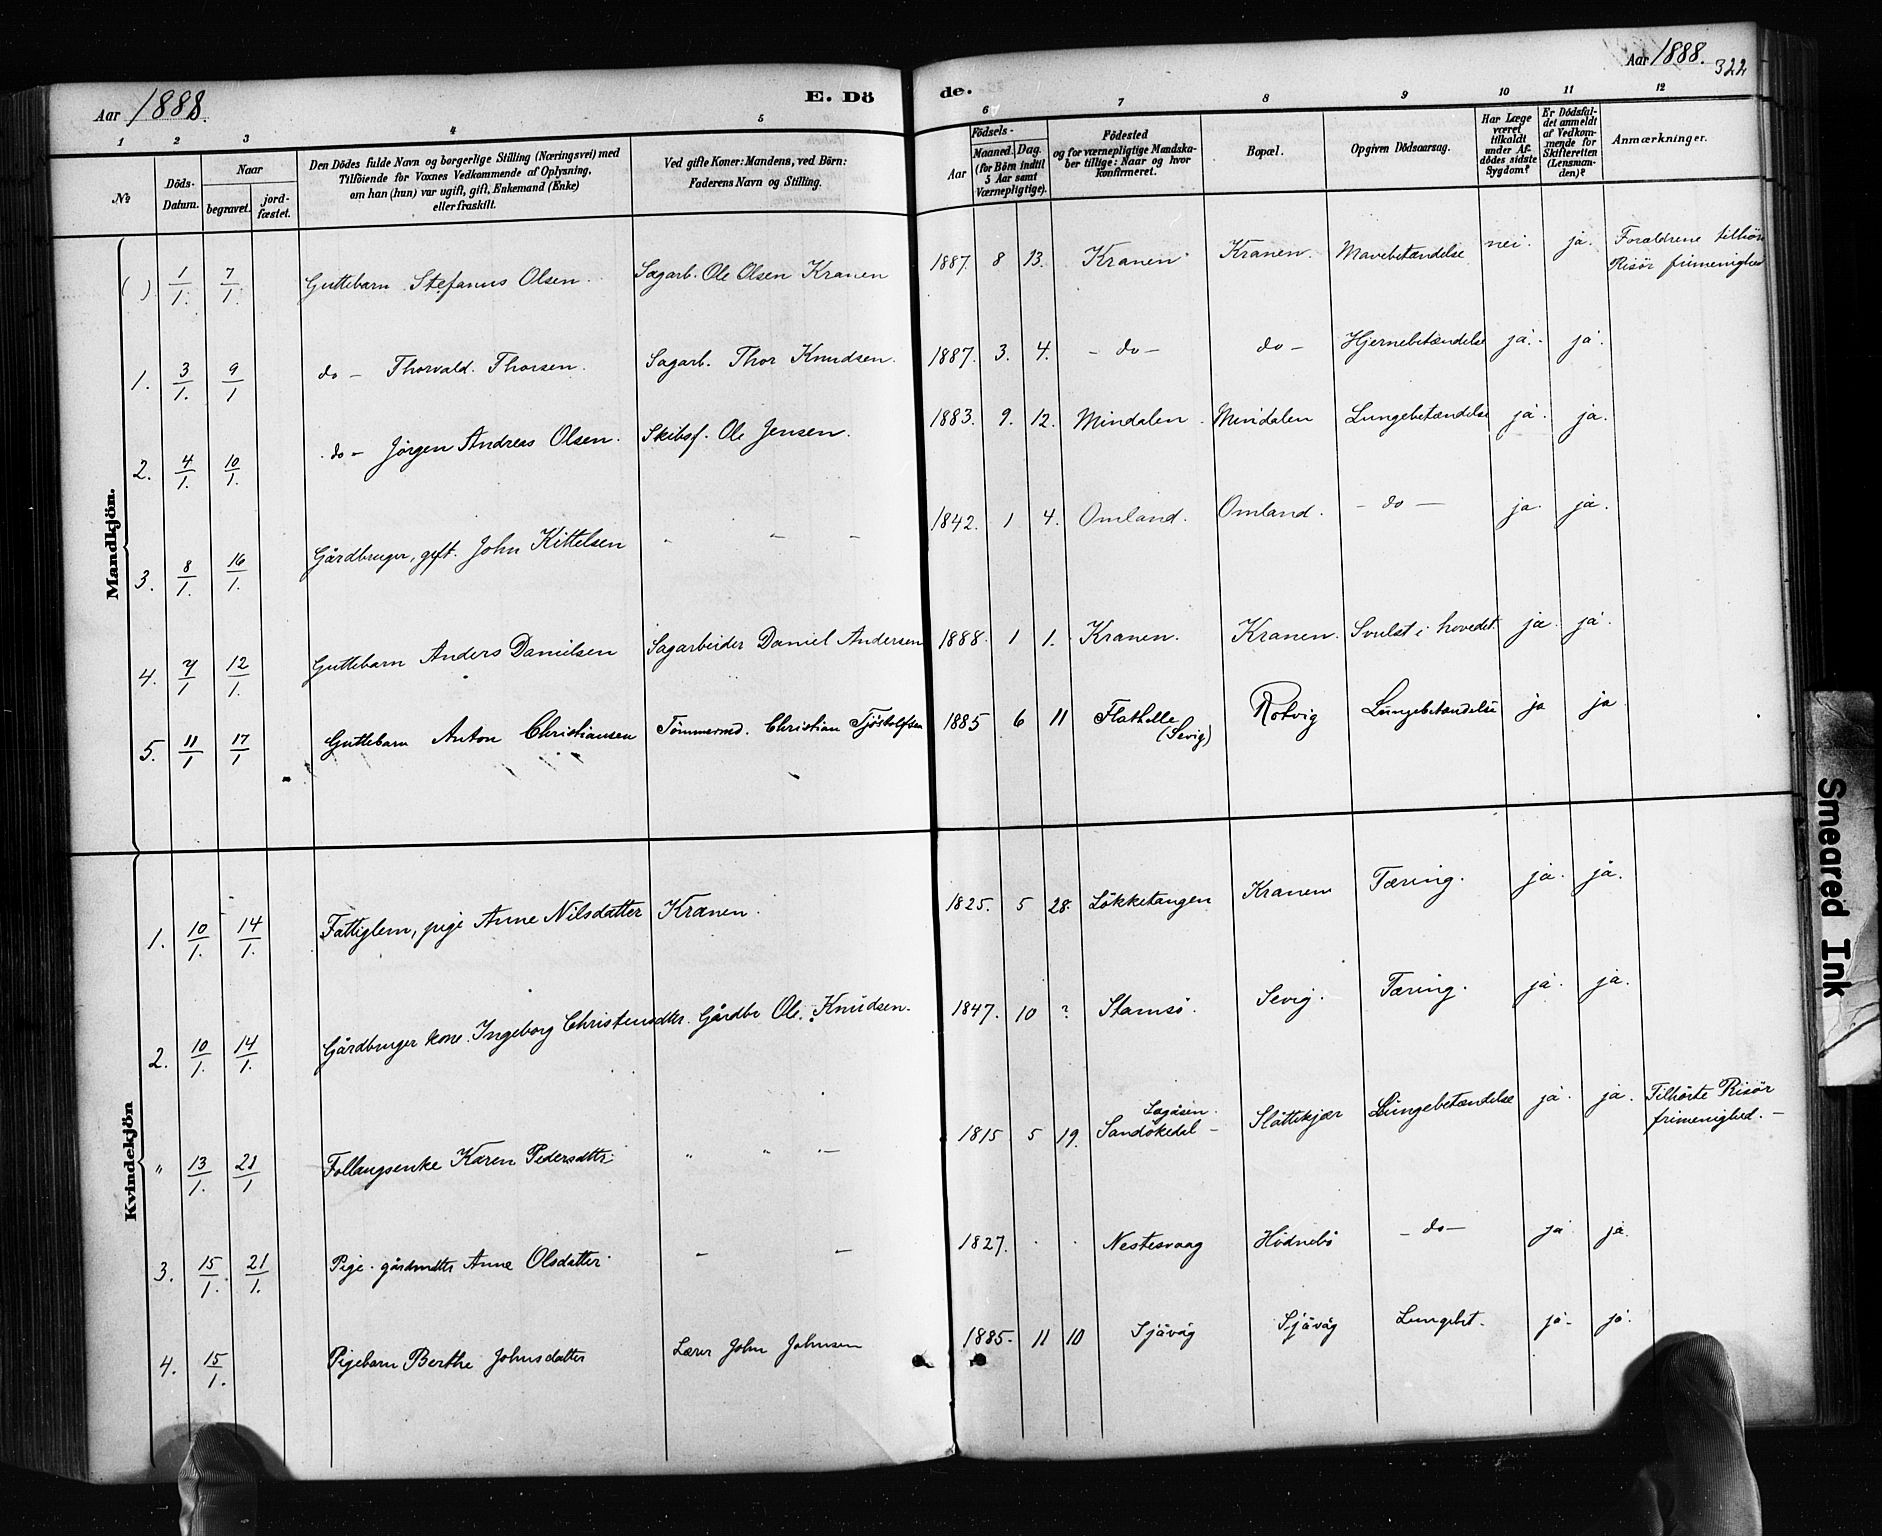 Aar 1888. E. Dö de. Aar 1888. 322
1 2 3 4 5 6 7 8 9 10 11 12
No
Döds-Datum.
Naar
begravet. jord-fæstet.
Den Dödes fulde Navn og borgerlige Stilling (Næringsvei) med
Tilföiende for Voxnes Vedkommende af Oplysning,
om han (hun) var ugift, gift, Enkemand (Enke)
eller fraskilt.
Ved gifte Koner: Mandens, ved Börn:
Faderens Navn og Stilling.
Födsels-
Aar Maaned. Dag.
(for Börn indtil
5 Aar samt
Værnepligtige).
Födested
og for værnepligtige Mandska-
ber tillige: Naar og hvor
Konfirmeret.
Bopæl.
Opgiven Dödsaarsag.
Har Læge
været
tilkaldt
under Af-
dödes sidste
Sygdom?
Er Dödsfal-
det anmeldt
af Vedkom-
mende for
Skifteretten
(Lensman-
den)?
Anmærkninger.
Mandkjön.
( ) 1/1. 7/1. Guttebarn Stefanus Olsen. Sagarb. Ole Olsen Kranen 1887. 8 13. Kranen. Kranen. Mavebetændelse nei. ja. Forældrene tilhör
Risör frimenighed
1. 3/1. 9/1 do — Thorvald Thorsen. Sagarb. Thor Knudsen. 1887. 3. 4. — do — do — Hjernebetændelse ja. ja.
2. 4/1. 10/1. do — Jörgen Andreas Olsen. Skibsf. Ole Jensen. 1883. 9. 12. Mindalen. Mindalen Lungebetændelse ja. ja.
3. 8/1. 16/1. Gårdbruger, gift. John Kittelsen - — — 1842. 1 4. Omland. Omland. — do — ja. ja.
4. 7/1 12/1. Guttebarn Anders Danielsen Sagarbeider Daniel Andersen 1888. 1 1. Kranen. Kranen. Svulst i hovedet. ja. ja.
5. 11/1 17/1 Guttebarn Anton Christiansen Tömmermd. Christian Tjöstolfsen 1885 6 11 Flathelle
(Sevig) Rotvig Lungebetændelse ja ja
Kvindekjön
1. 10/1. 14/1. Fattiglem, pige Anne Nilsdatter Kranen. 1825. 5 28. Lökketangen Kranen Tæring. ja. ja.
2. 10/1. 14/1. Gårdbruger kone. Ingeborg Christensdtr. Gårdbr Ole Knudsen. 1847. 10 ? Stamsö. Sevig. Tæring. ja. ja.
" 13/1. 21/1 Karen Pedersdttr. " " — 1815 5 19. Lagåsen.
Sandökedal — Slåttekjær Lungebetændelse ja. ja. Tilhörte Risör
frimenighed. —
3. 15/1. 21/1. Pige. gårdmdttr Anne Olsdatter. — — 1827. . . Nestesvaag Hödnebö — do — ja. ja.
4. 15/1. Pigebarn Berthe Johnsdatter Lærer John Johnsen 1885. 11 10 Sjåvåg Sjåvåg Lungebet. ja. ja.
Smeared Ink